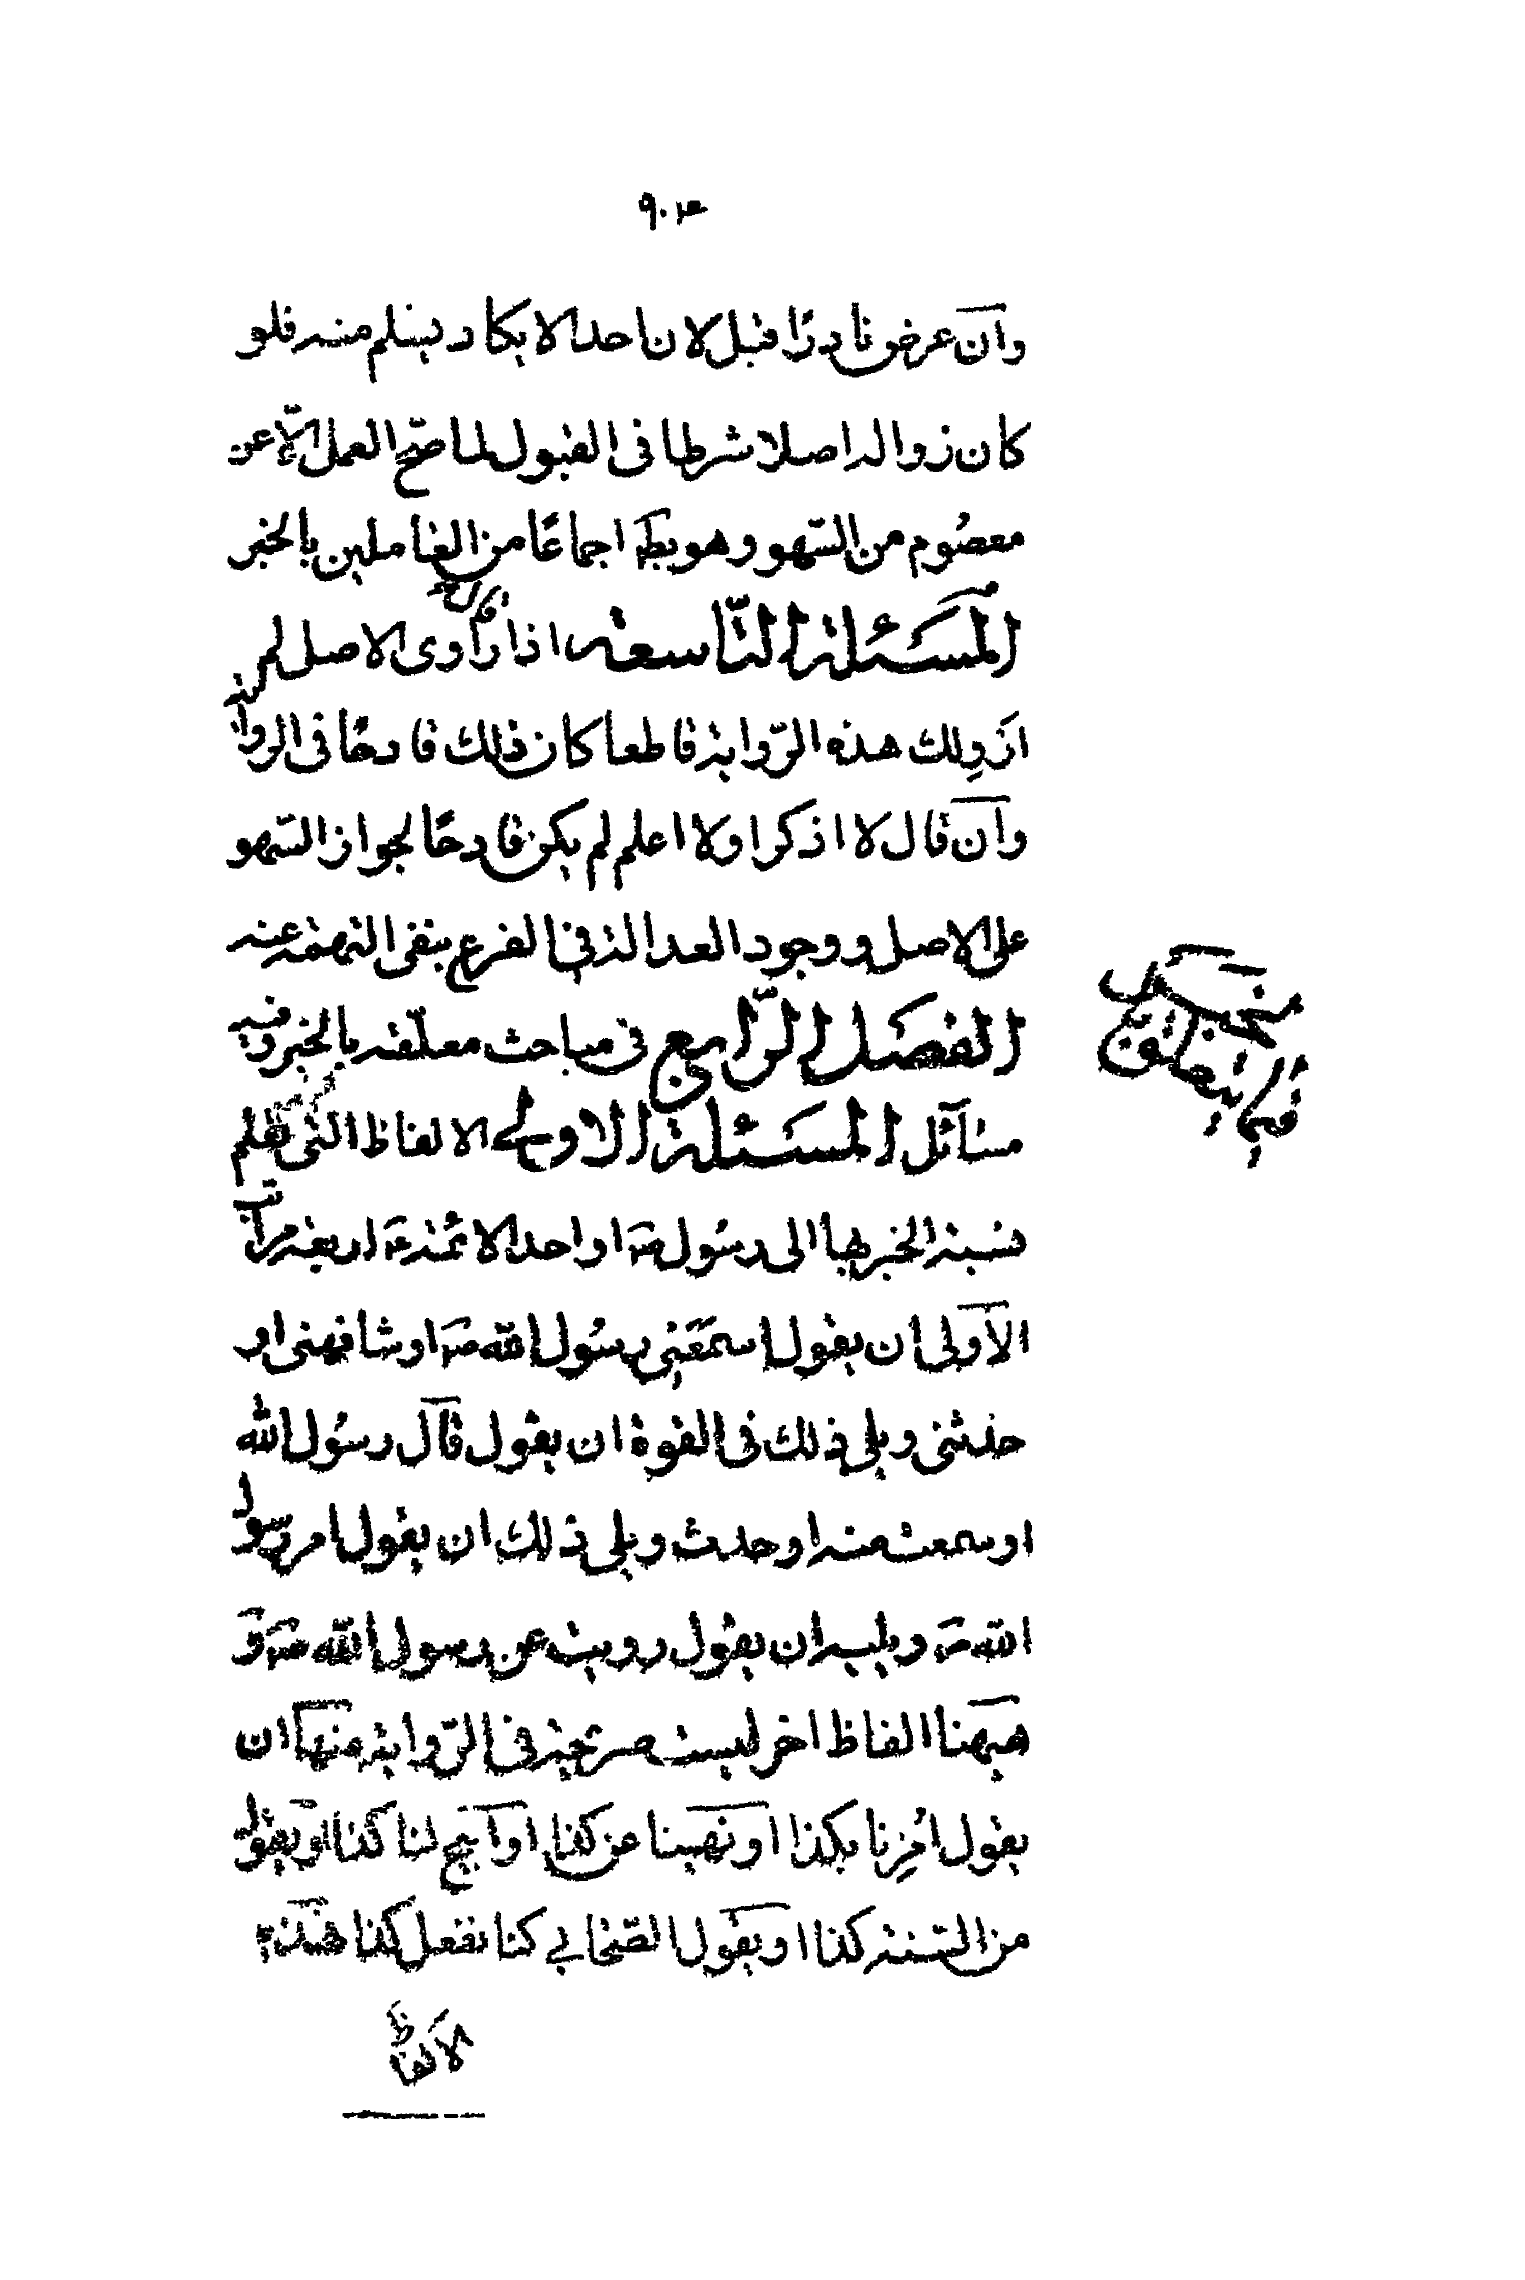 وان عرض نادرًا قبل لان احدا لا يكاد يسلم منه فلو
كان زواله اصلا شرطا فى القبول لما صحّ العمل الّا عن
معصوم من السّهو وهو بط اجماعًا من العاملين بالخبر
المسئلة التّاسعة اذا راوى الاصل لم
ارو لك هذه الرّواية قاطعا كان ذلك قادحًا فى الرواية
وان قال لا اذكر او لا اعلم لم يكن قادحًا لجواز السّهو
على الاصل ووجود العدالة فى الفرع ينفى التهمة عنه
الفصل الرّابع فى مباحث متعلّقة بالخبر وفيه
مسائل المسئلة الاولى الالفاظ التى تعلم
نسبة الخبر بها الى رسول ص او احد الائمة ع اربعة مراتب
الاولى ان يقول اسمعنى رسول الله ص او شافهنى او
حدثنى ويلى ذلك فى القوة ان يقول قال رسول الله
او سمعت منه او حدث ويلى ذلك ان يقول امر رسول
الله ص ويليه ان يقول رويت عن رسول الله ص و
هيهنا الفاظ اخر ليست صريحة فى الرّواية منها ان
يقول اُمِرنا بكذا او نهينا عن كذا او ابيح لنا كذا او يقول
من السّنة كذا او يقول الصّحابي كنا نفعل كذا فهذه
الالفاظ